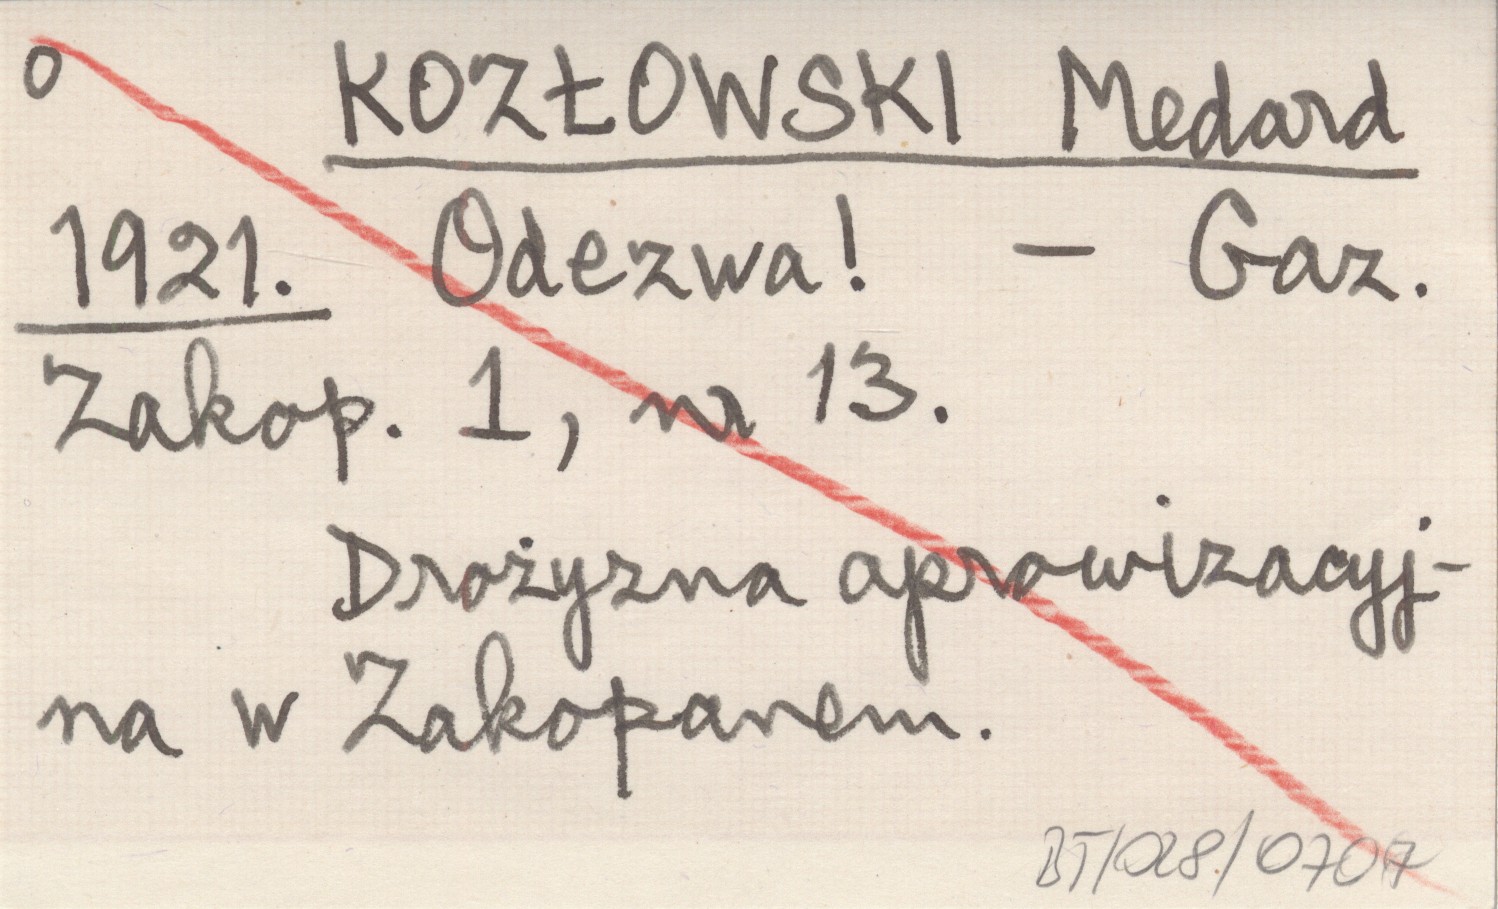 o KOZŁOWSKI Medard
1921. Odezwa! - Gaz.
Zakop. 1, nr 13.
Drożyzna aprowizacyj-
na w Zakopanem.
BT/028/0707